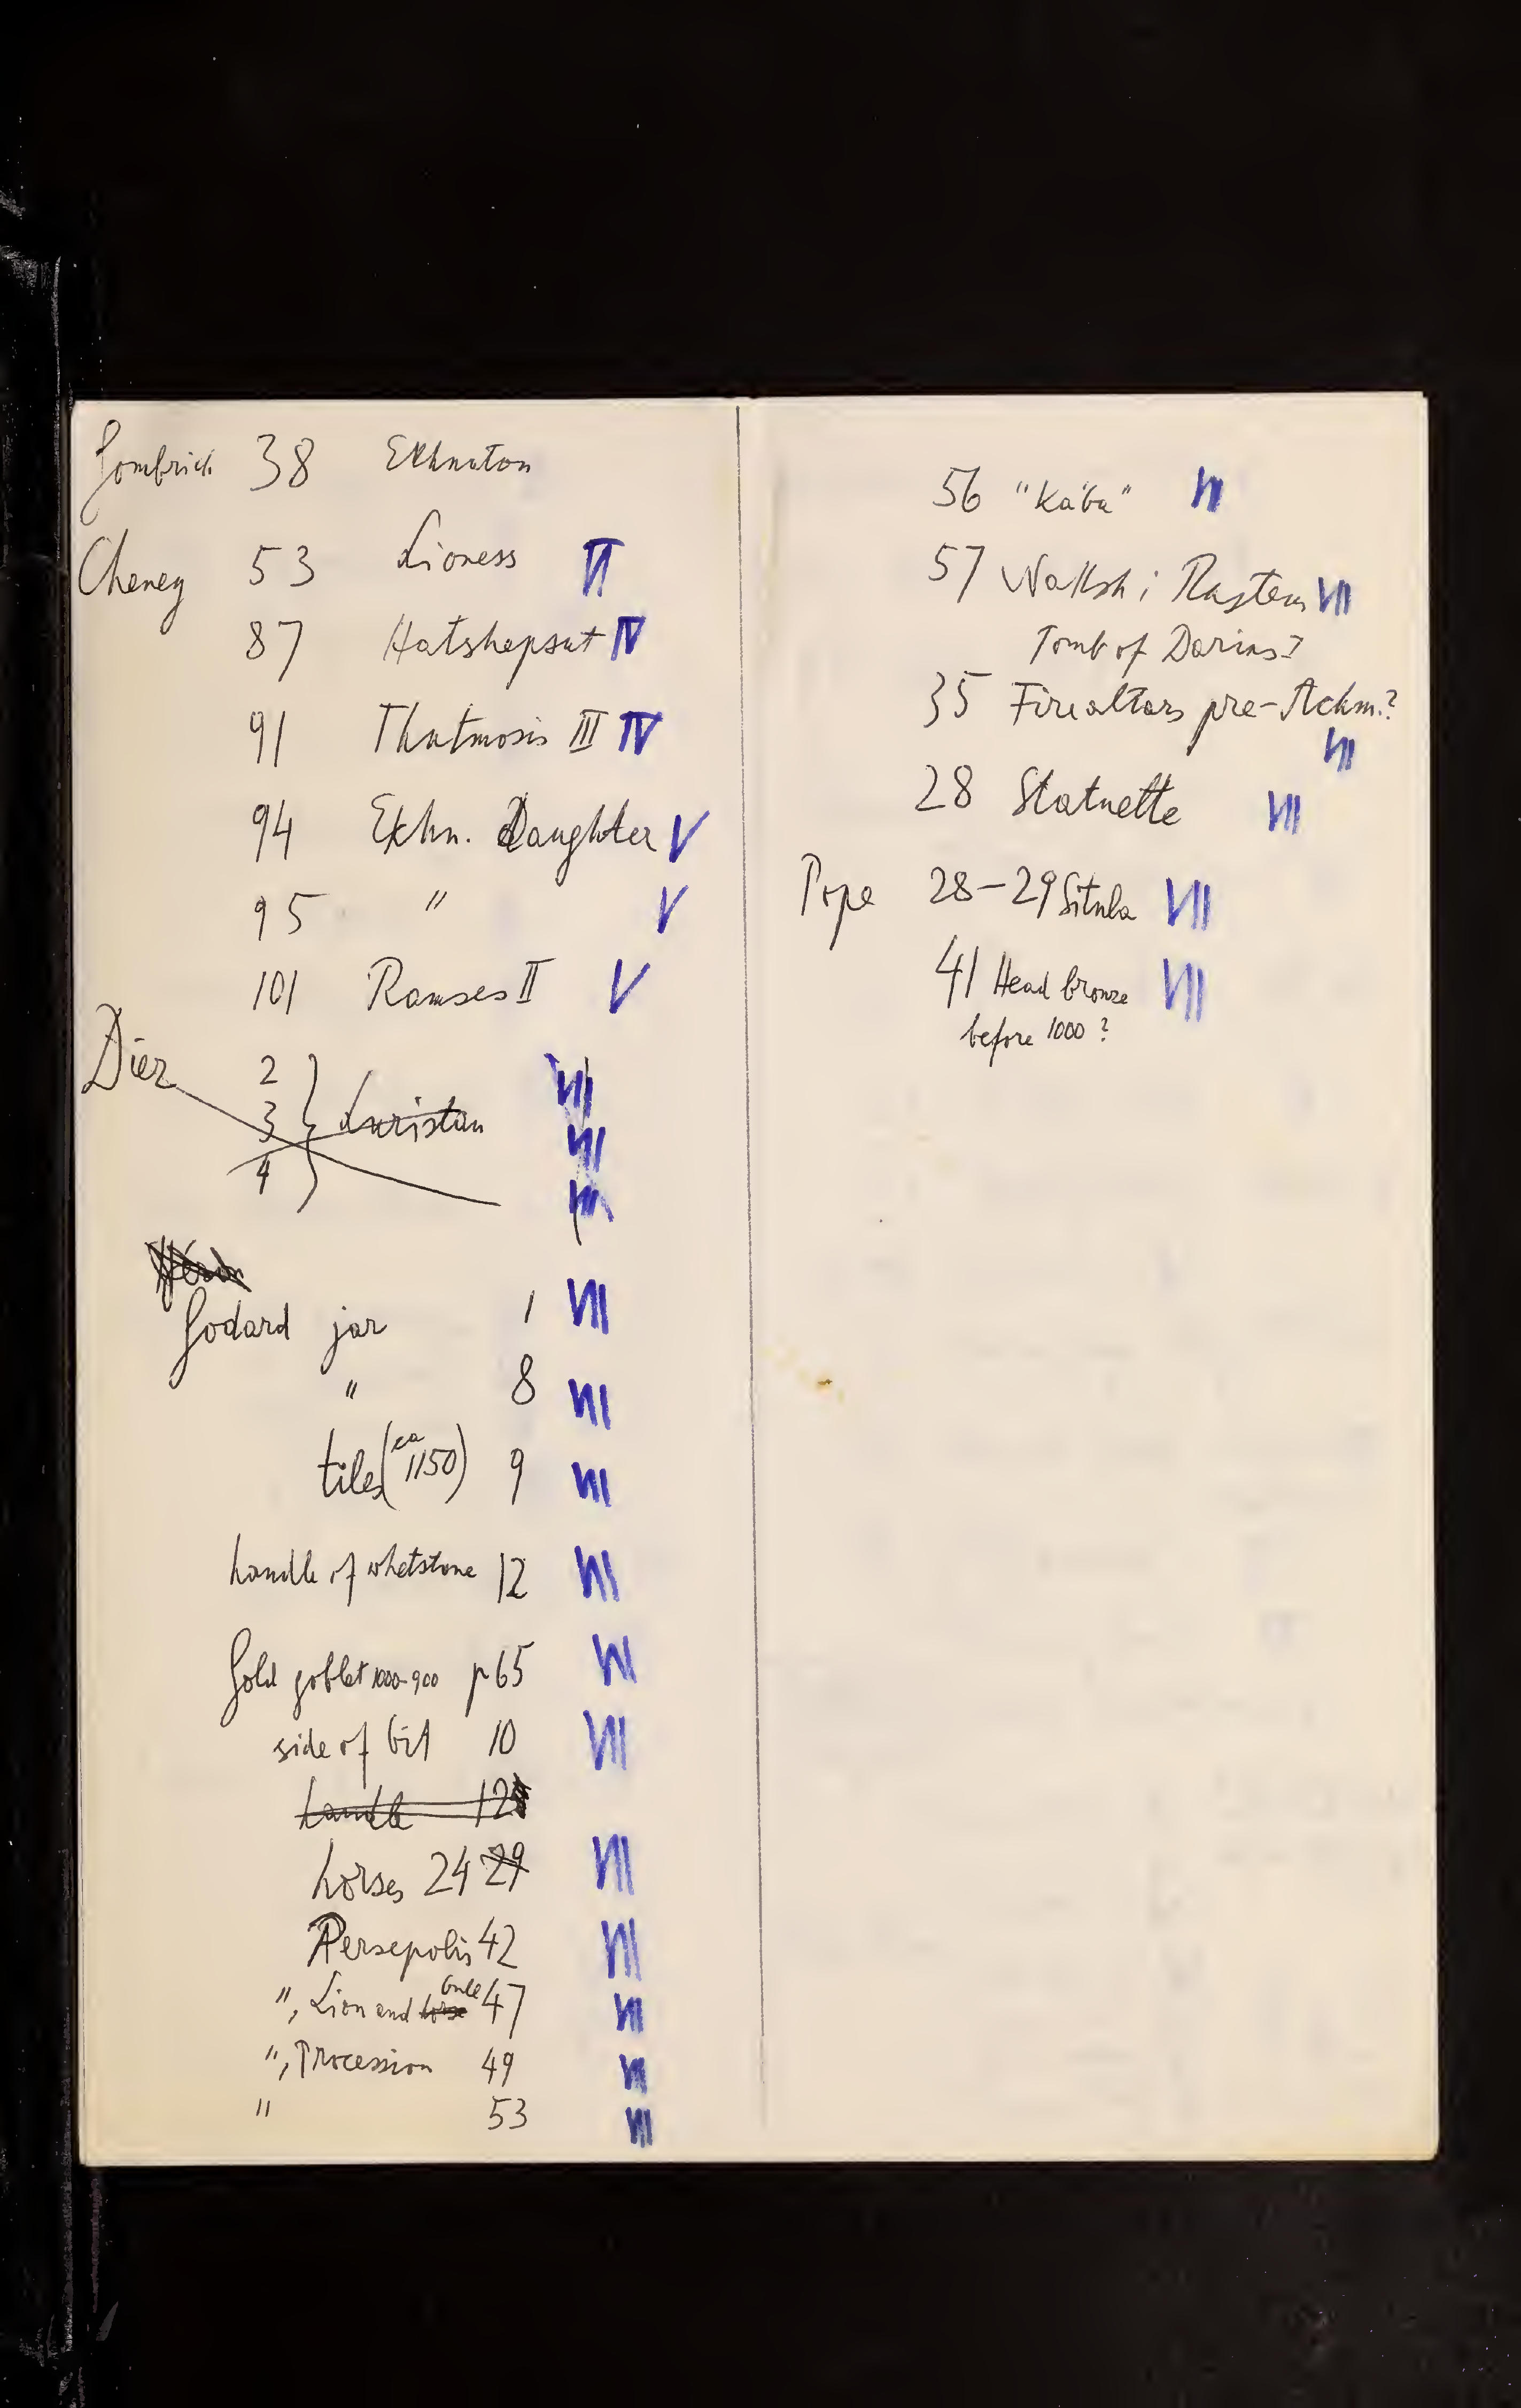 Gombrich 38 Ekhnaton
Cheney 53 Lioness VI
87 Hatshepsut IV
91 Thutmosis III IV
94 Ekhn. Daughter V
95 " V
101 Ramses II V
Diez 2 VII
3 } Luristan VII
4 VII
Godard jar 1 VII
" 8 VII
tiles (ca 1150) 9 VII
handle of whetstone 12 VII
Gold goblet 1000-900 p 65 VII
side of bit 10 VII
handle 12
horses 24 29 VII
Persepolis 42 VII
", Lion and horse bull 47 VII
", Procession 49 VII
" 53 VII
56 "Ka'ba" VII
57 Naksh i Rustem VII
Tomb of Darius?
35 Firealtars pre-Achm.?
VII
28 Statuette VII
Pope 28-29 Situla VII
41 Head bronze VII
before 1000?